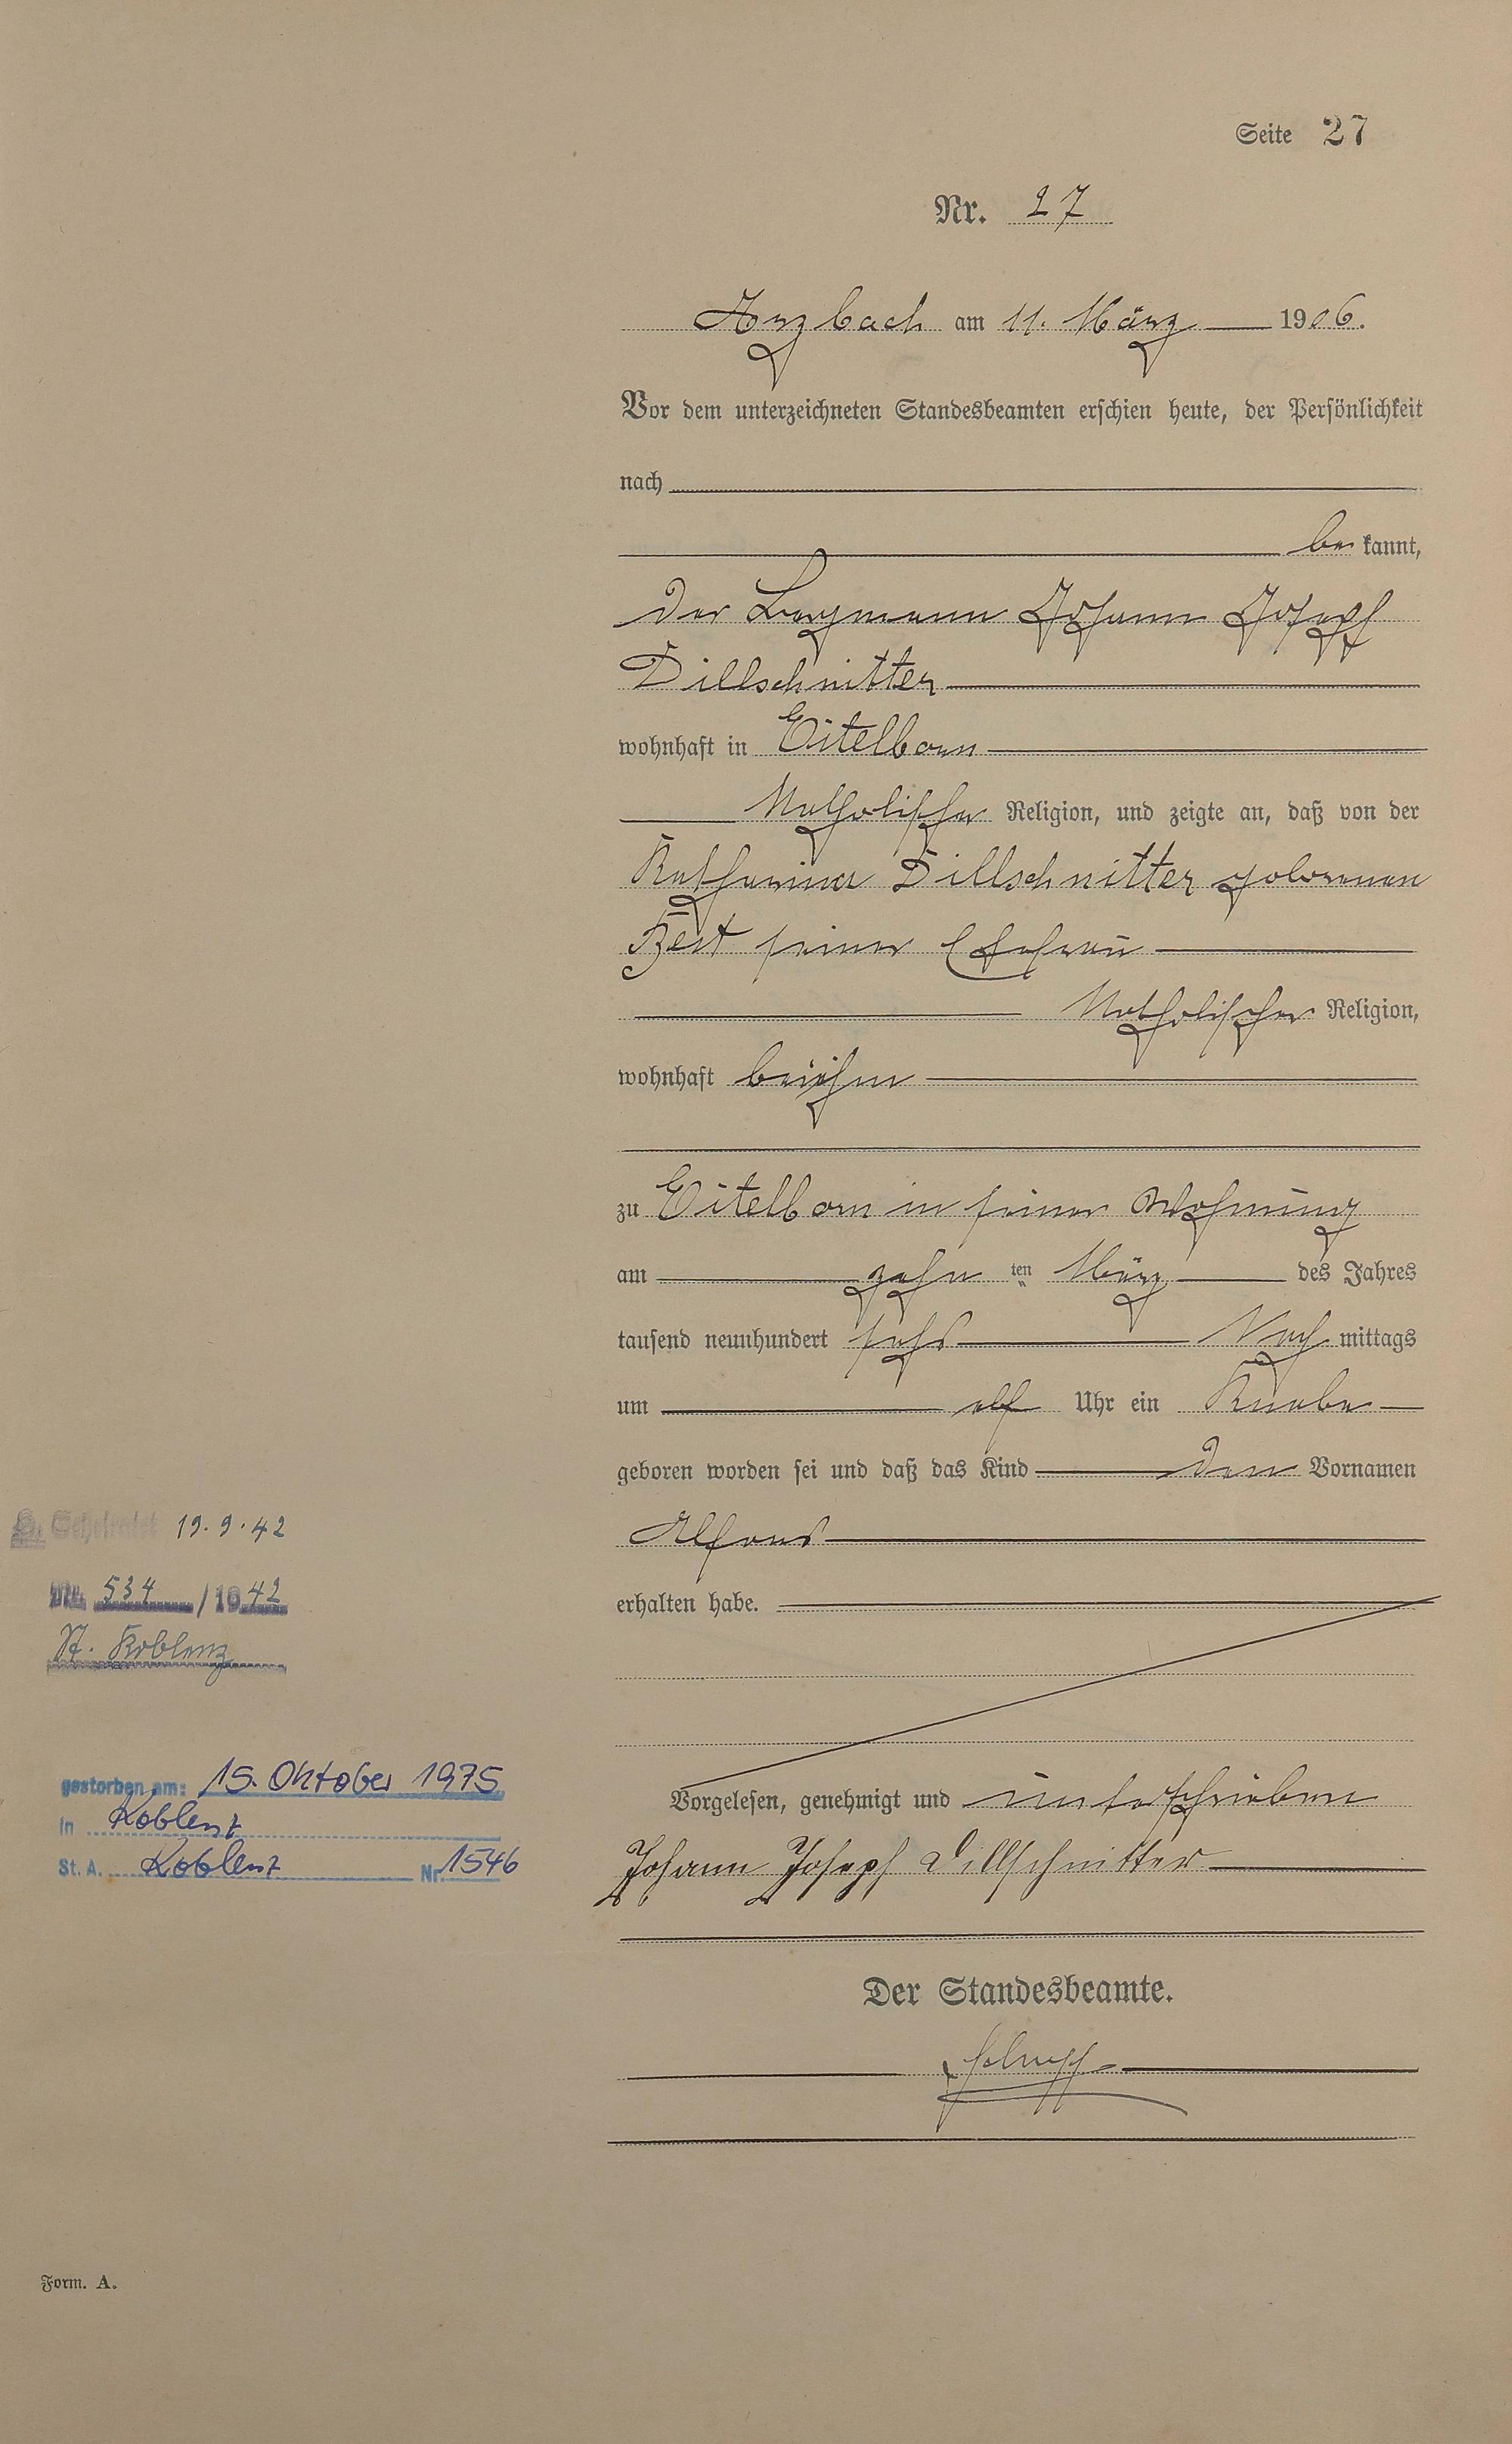 Seite 27
Nr. 27
Arzbach am 11. März 1906.
Vor dem unterzeichneten Standesbeamten erschien heute, der Persönlichkeit
nach
be kannt,
der Bergmann Johann Josef
Dillschnitter
wohnhaft in Eitelborn
katholischer Religion, und zeigte an, daß von der
Katharina Dillschnitter geborenen
Best seiner Ehefrau
katholischer Religion,
wohnhaft bei ihm
zu Eitelborn in seiner Wohnung
am zehn ten März des Jahres
tausend neunhundert sechs Nach mittags
um elf Uhr ein Knabe
geboren worden sei und daß das Kind den Vornamen
Alfons
erhalten habe.
Vorgelesen, genehmigt und unterschrieben
Johann Joseph Dillschnitter
Der Standesbeamte.
19.9.42
Nr. 534 / 1942
St. Koblenz
gestorben am: 15. Oktober 1975
in Koblenz
St. A. Koblenz Nr. 1546
Form. A.